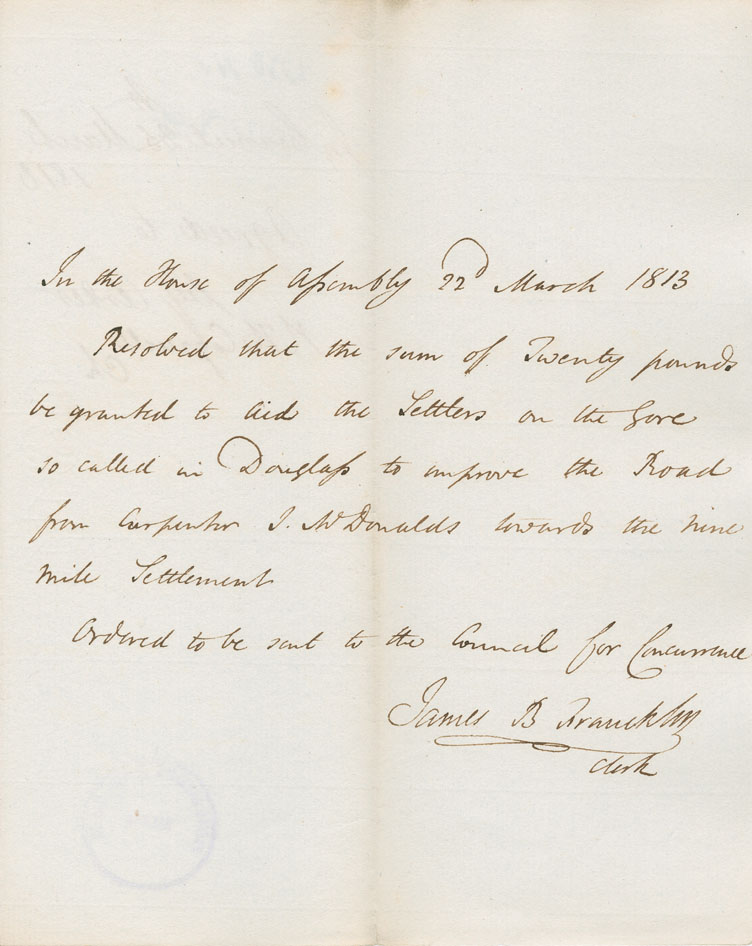 In the House of Assembly 22d March 1813
Resolved that the sum of Twenty pounds
be granted to Aid the Settlers on the Gore
so called in Douglass to improve the Road
from Carpenter J. McDonalds towards the Nine
Mile Settlement
Ordered to be sent to the Council for Concurrence
James B Francklin
Clerk